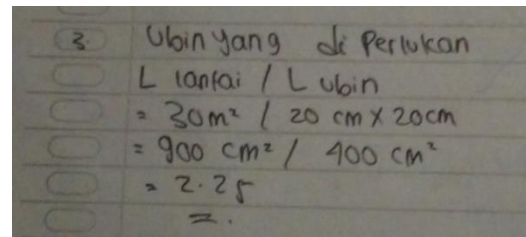 3. Ubin yang di Perlukan
L lantai / L ubin
= 30m² / 20 cm x 20cm
= 900 cm² / 400 cm²
= 2.25
=.